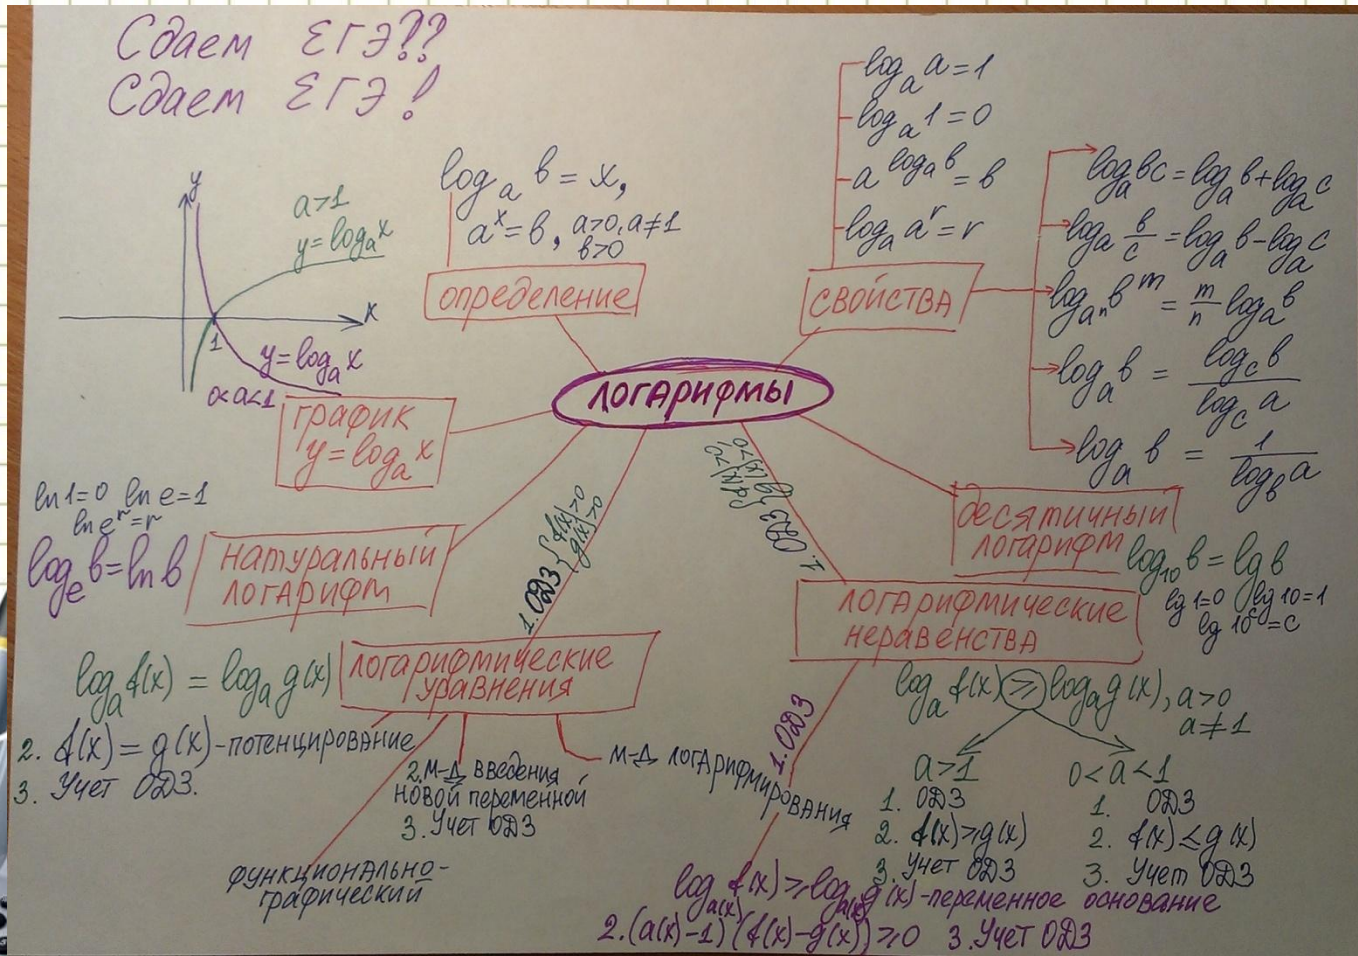 Сдаем ЕГЭ??
Сдаем ЕГЭ!
y
a>1
y=logₐx
x
1
y=logₐx
0<a<1
график
y=logₐx
logₐ b = x,
aˣ=b, a>0, a≠1
b>0
определение
logₐ a=1
logₐ 1=0
a^(logₐ b) = b
logₐ aʳ=r
свойства
logₐ bc=logₐ b+logₐ c
logₐ b/c=logₐ b-logₐ c
log_(aⁿ) bᵐ = m/n logₐ b
logₐ b = log_c b / log_c a
logₐ b = 1 / log_b a
логарифмы
ln1=0 ln e=1
ln eʳ=r
log_e b=ln b
натуральный
логарифм
десятичный
логарифм
log₁₀ b=lg b
lg 1=0 lg 10=1
lg 10ᶜ=c
1. ОДЗ { f(x)>0
g(x)>0
1. ОДЗ { f(x)>0,
g(x)>0
логарифмические
уравнения
logₐ f(x) = logₐ g(x)
2. f(x)=g(x)-потенцирование
3. Учет ОДЗ.
2. м-д введения
новой переменной
3. Учет ОДЗ
м-д логарифмирования
функционально-
графический
логарифмические
неравенства
logₐ f(x) ≥ logₐ g(x), a>0
a≠1
a>1
1. ОДЗ
2. f(x)≥g(x)
3. Учет ОДЗ
0<a<1
1. ОДЗ
2. f(x)≤g(x)
3. Учет ОДЗ
1. ОДЗ
log_(a(x)) f(x)≥log_(a(x)) g(x)-переменное основание
2.(a(x)-1)(f(x)-g(x))≥0 3. Учет ОДЗ